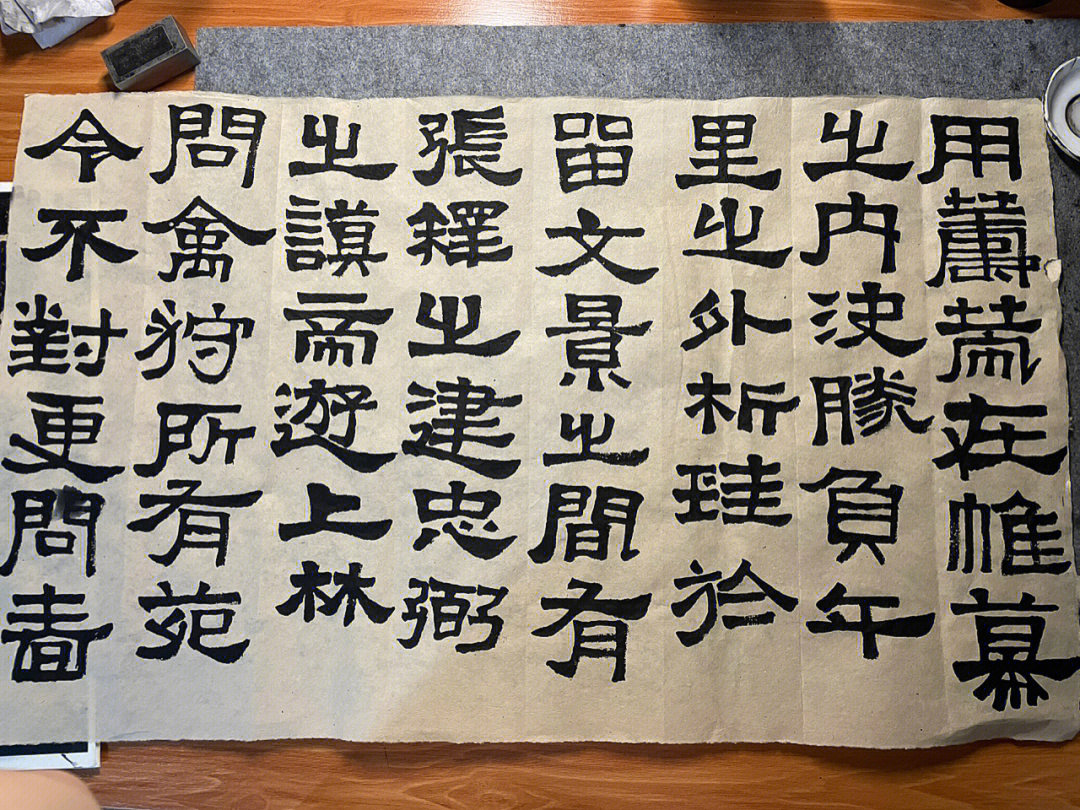 用籌策在帷幕
之内決勝負千
里之外析珪於
留文景之間有
張釋之建忠弼
之謨帝遊上林
問禽狩所有苑
令不對更問嗇